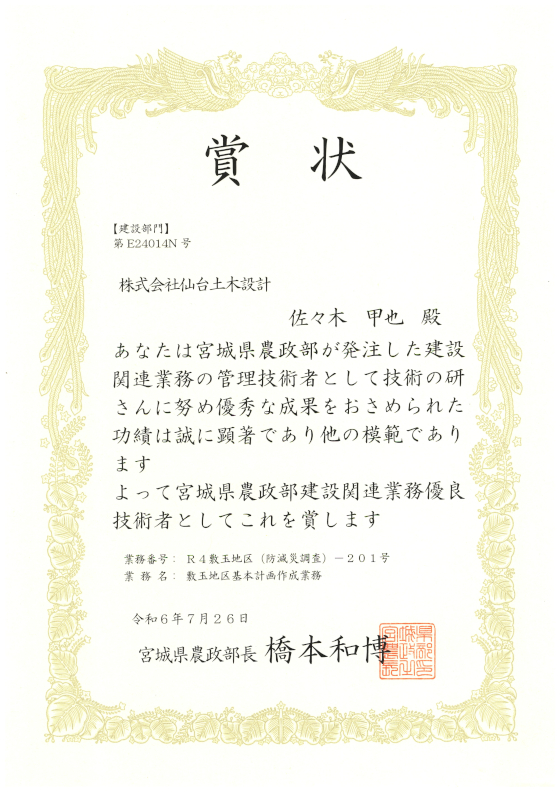 賞状
【建設部門】
第E24014N号
株式会社仙台土木設計
佐々木 甲也 殿
あなたは宮城県農政部が発注した建設
関連業務の管理技術者として技術の研
さんに努め優秀な成果をおさめられた
功績は誠に顕著であり他の模範であり
ます
よって宮城県農政部建設関連業務優良
技術者としてこれを賞します
業務番号： Ｒ４敷玉地区（防減災調査）－２０１号
業 務 名： 敷玉地区基本計画作成業務
令和６年７月２６日
宮城県農政部長 橋本和博